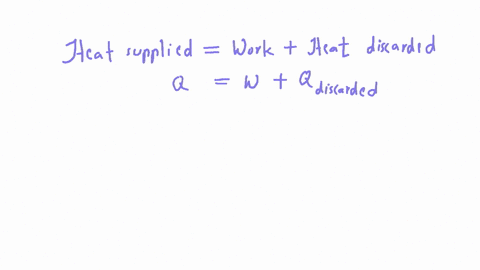 Heat supplied = Work + Heat discarded
Q = W + Q discarded